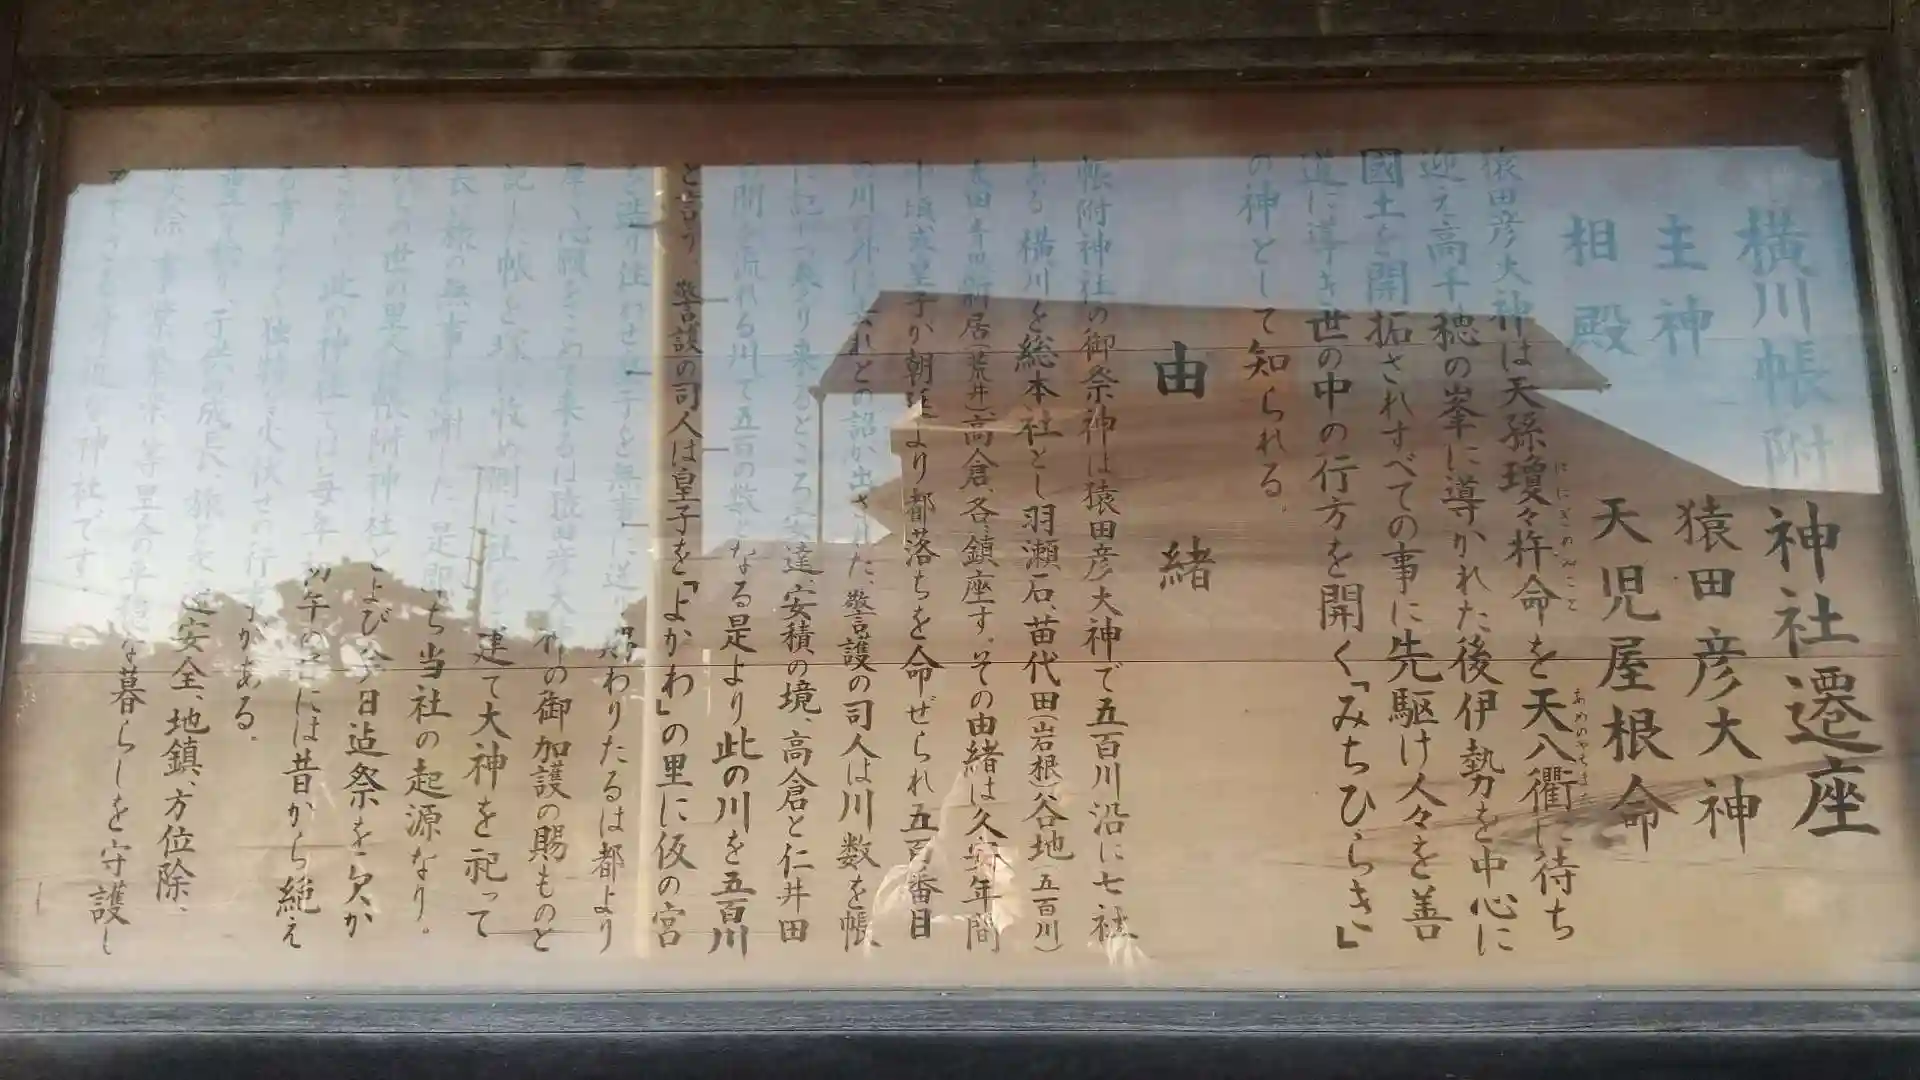 横川帳附神社遷座
主神 猿田彦大神
相殿 天児屋根命
猿田彦大神は天孫瓊々杵命を天八衢に待ち
ににぎのみこと
あめのやちまた
迎え高千穂の峯に導かれた後伊勢を中心に
國土を開拓されすべての事に先駆け人々を善
道に導き世の中の行方を開く「みちひらき」
の神として知られる。
由緒
帳附神社の御祭神は猿田彦大神で五百川沿に七社
ある横川を総本社とし羽瀬石、苗代田(岩根)谷地(五百川)
新居(荒井)高倉、各、鎮座す。その由緒は久安年間
の頃或皇子が朝廷より都落ちを命ぜられ五百番目
の川の外に去れとの詔が出された、警護の司人は川数を帳
に記しつ来り来るところ安達、安積の境、高倉と仁井田
の間を流れる川で五百の数となる是より此の川を五百川
と言う。警護の司人は皇子を「よかわ」の里に仮の宮
を造り住わせ皇子を無事に送り 賜わりたるは都より
厚く心願をこめて来るは猿田彦大神の御加護の賜ものと
記した帳を塚に收め側に社を建て大神を祀って
長旅の無事を謝した是即ち当社の起源なり。
の世の里人は帳附神社とよび今日迠祭を欠か
此の神社では毎年 には昔から絶え
る事なく独特な火伏せの行事がある。
子供の成長、旅と交通安全、地鎮、方位除、
事業繁栄等里人の平穏な暮らしを守護し
神社です。